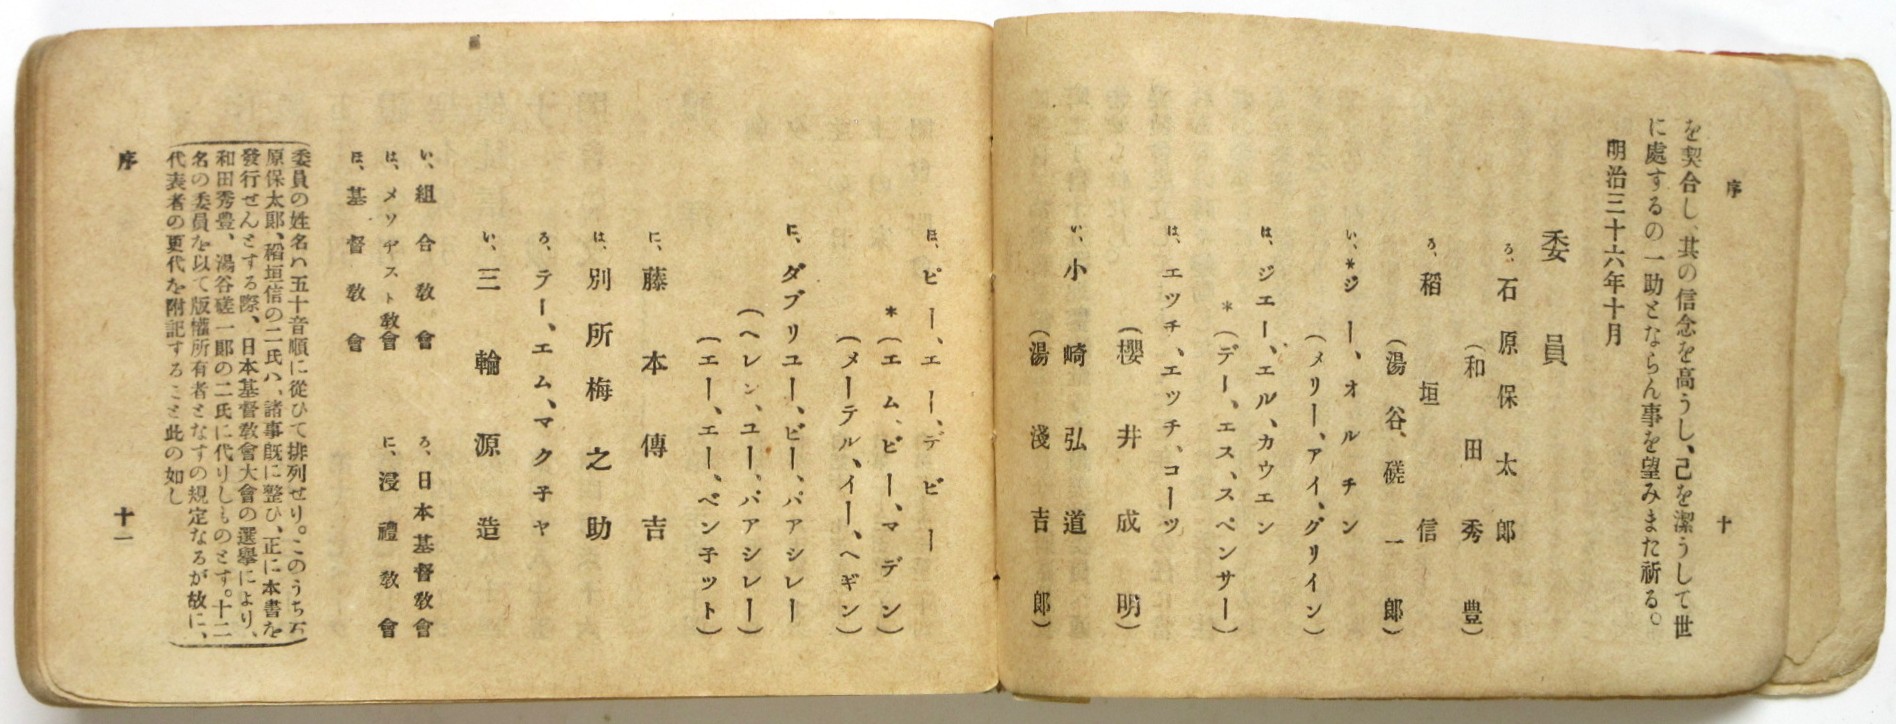 序
十
を契合し、其の信念を高うし、己を潔うして世
に處するの一助とならん事を望みまた祈る。
明治三十六年十月
委員
ろ、石原保太郎
(和田秀豊)
ろ、稻垣信
(湯谷、磋一郎)
い、*ジー、オルチン
(メリー、アイ、グリイン)
は、ジエー、エル、カウエン
*(デー、エス、スペンサー)
は、エツチ、エツチ、コーツ
(櫻井成明)
い、小崎弘道
(湯淺吉郎)
ほ、ピー、エー、デビー
*(エム、ビー、マデン)
(メーテル、イー、ヘギン)
に、ダブリユー、ビー、パアシレー
(ヘレン、ユー、パアシレー)
(エー、エー、ベン子ツト)
に、藤本傳吉
は、別所梅之助
ろ、テー、エム、マク子ヤ
い、三輪源造
い、組合敎會
ろ、日本基督敎會
は、メソヂスト敎會
に、浸禮敎會
ほ、基督敎會
委員の姓名ハ五十音順に從ひて排列せり。このうち石
原保太郎、稻垣信の二氏ハ、諸事既に整ひ、正に本書を
發行せんとする際、日本基督敎會大會の選擧により、
和田秀豊、湯谷磋一郎の二氏に代りしものとす。十二
名の委員を以て版權所有者となすの規定なるが故に、
代表者の更代を附記すること此の如し
序
十一